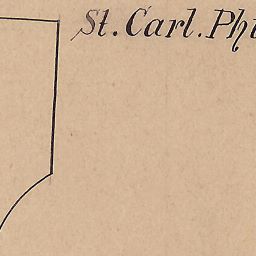 St. Carl. Ph